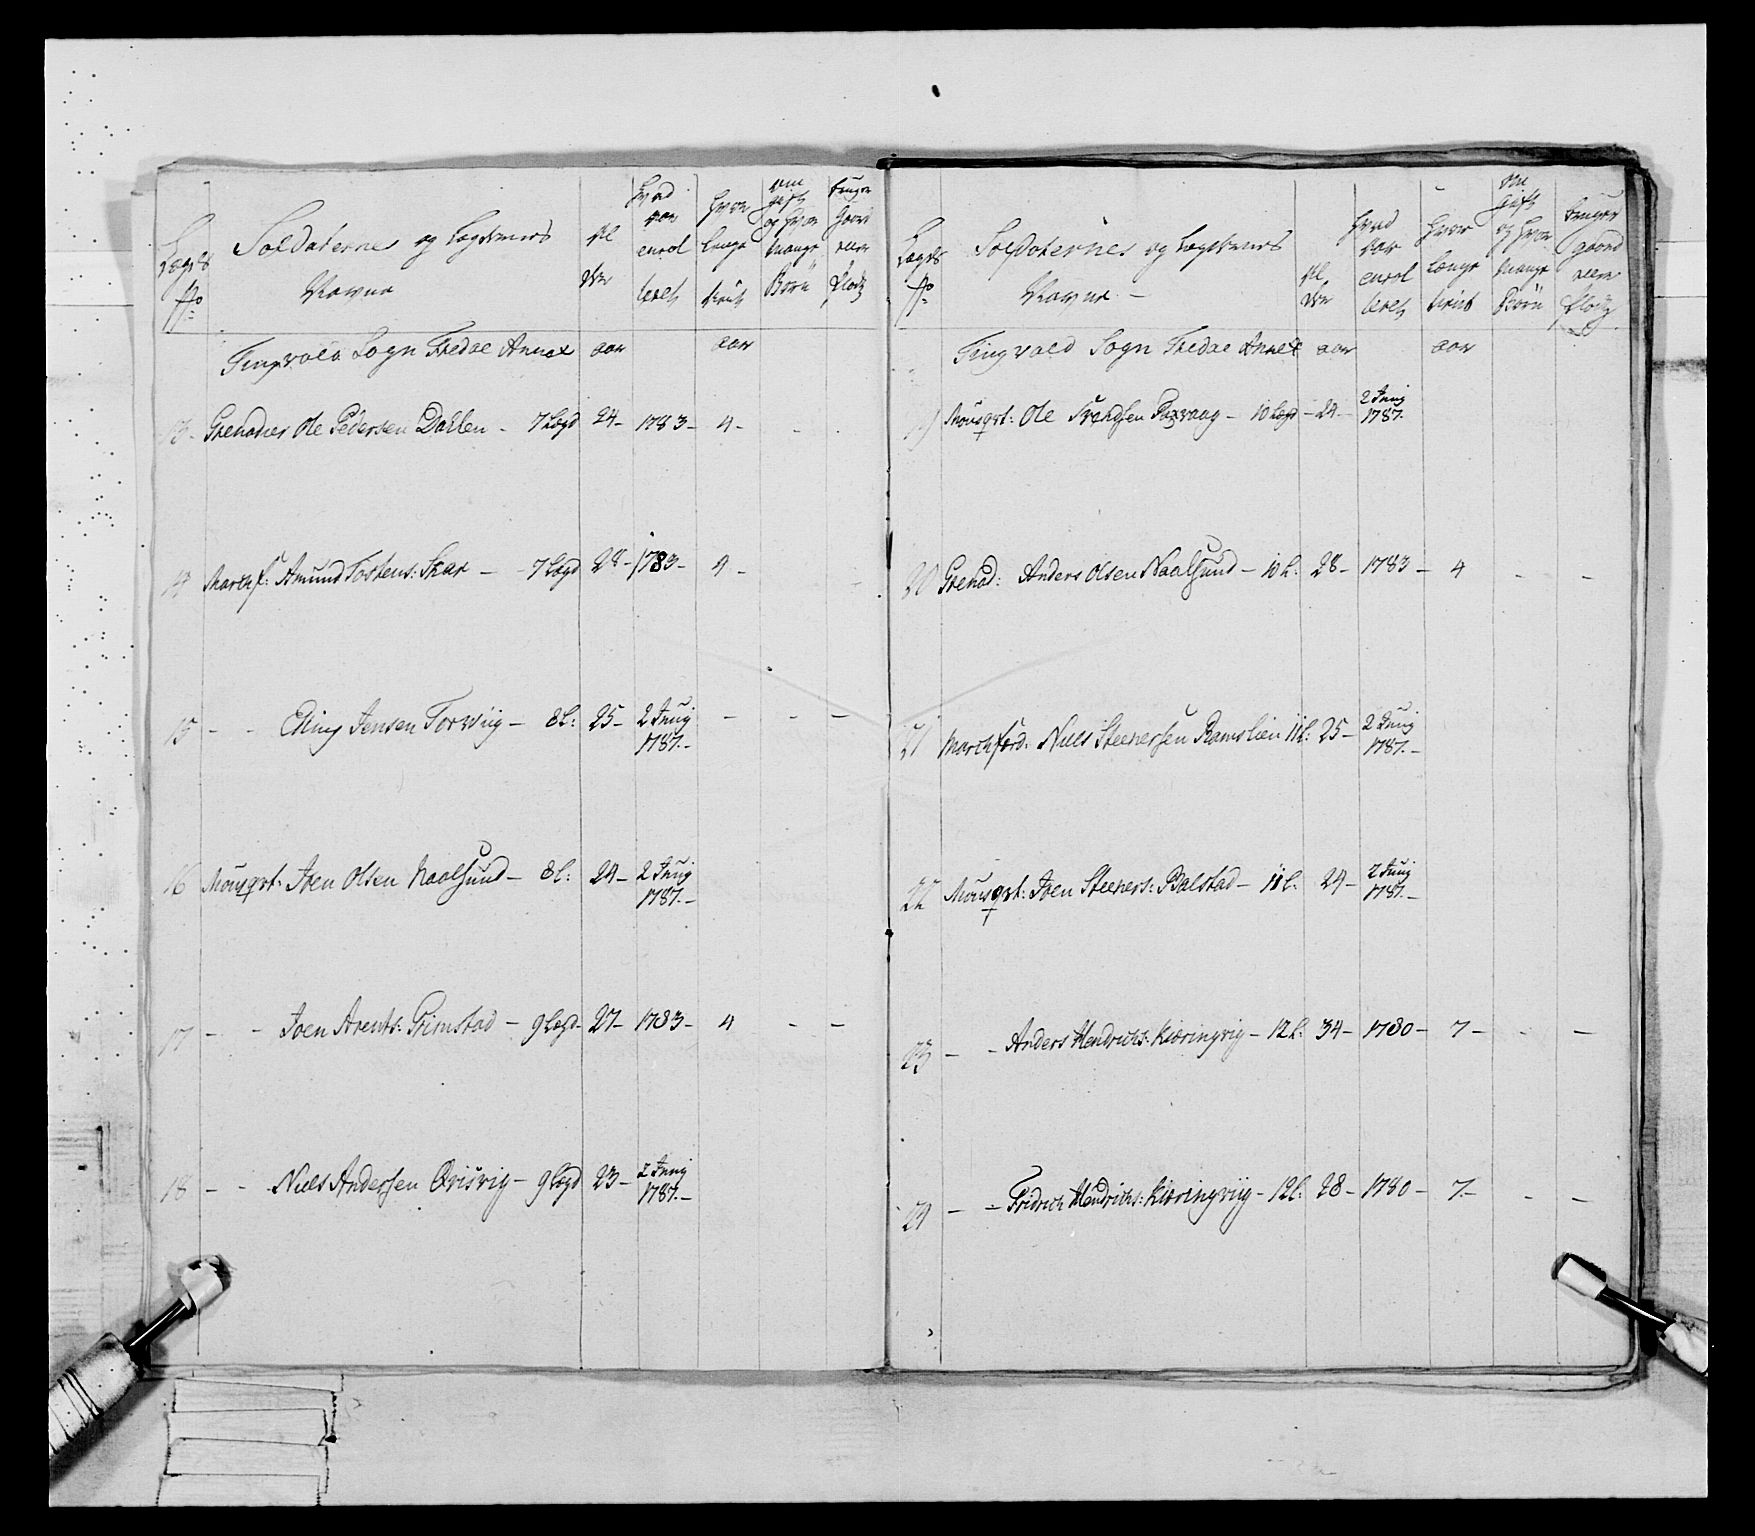 Lægds No
Soldaternes og Lægdernes Navne
Al der
Hvad aar enrol leret
Hvor længe tient
om gift og hvor mange Børn
bruger Gaard eller Plads
Tingvold Sogn Tredæ Annex aar aar
13 - Grenadeer Ole Pedersen Dahlen - 7 Lægd 24 - 1783 - 4 -
14 Marchf: Amund Tostens: Skar - - 7 Lægd 28 - 1783 - 4 -
15 - - Elling Jensen Torwiig - 8 L: 25 - 2 Junij 1787. - - - -
16 Mousqvt: Joen Olsen Naalsund - 8 l: 24 - 2 Junij 1787. -
17 - - Joen Arents: Grimstad - 9 Lægd - 27 - 1783 - 4 - -
18 - - Niels Andersen Qvisvig - 9 Lægd 23 - 2 Junij 1787. -
Lægds No
Soldaternes og Lægdernes Navne -
Al der
Hvad aar enrol leret
Hvor længe tient
om gift og hvor mange Børn
bruger gaard eller Plads
Tingvold Sogn Tredæ Annex aar aar
19 Mousqvt: Ole - 10 Lægd - 24 - 2 Junij 1787.
20 Grenad: Anders Olsen Naalsund - 10 L: 28 - 1783 - 4 - -
21 Marchford: Niels Steenersen Ramslien 11 L: 25 - 2 Junij 1787. -
22 Mousqvt: Joen Steeners: Balstad - 11 l: 24 - 2 Junij 1787. -
23 - - Anders Hendrichs: Kiæringvig - 12 L: 34 - 1780 - 7 - - -
24 - - Fridrich Hendrichs: Kiæringviig - 12 l: 28 - 1780 - 7. - - -